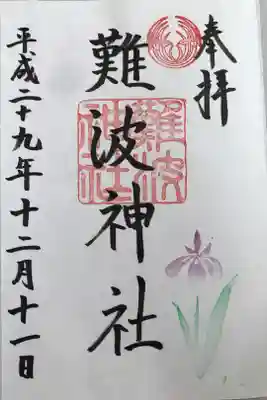 奉拝
難波神社
難波神社
平成二十九年十二月十一日